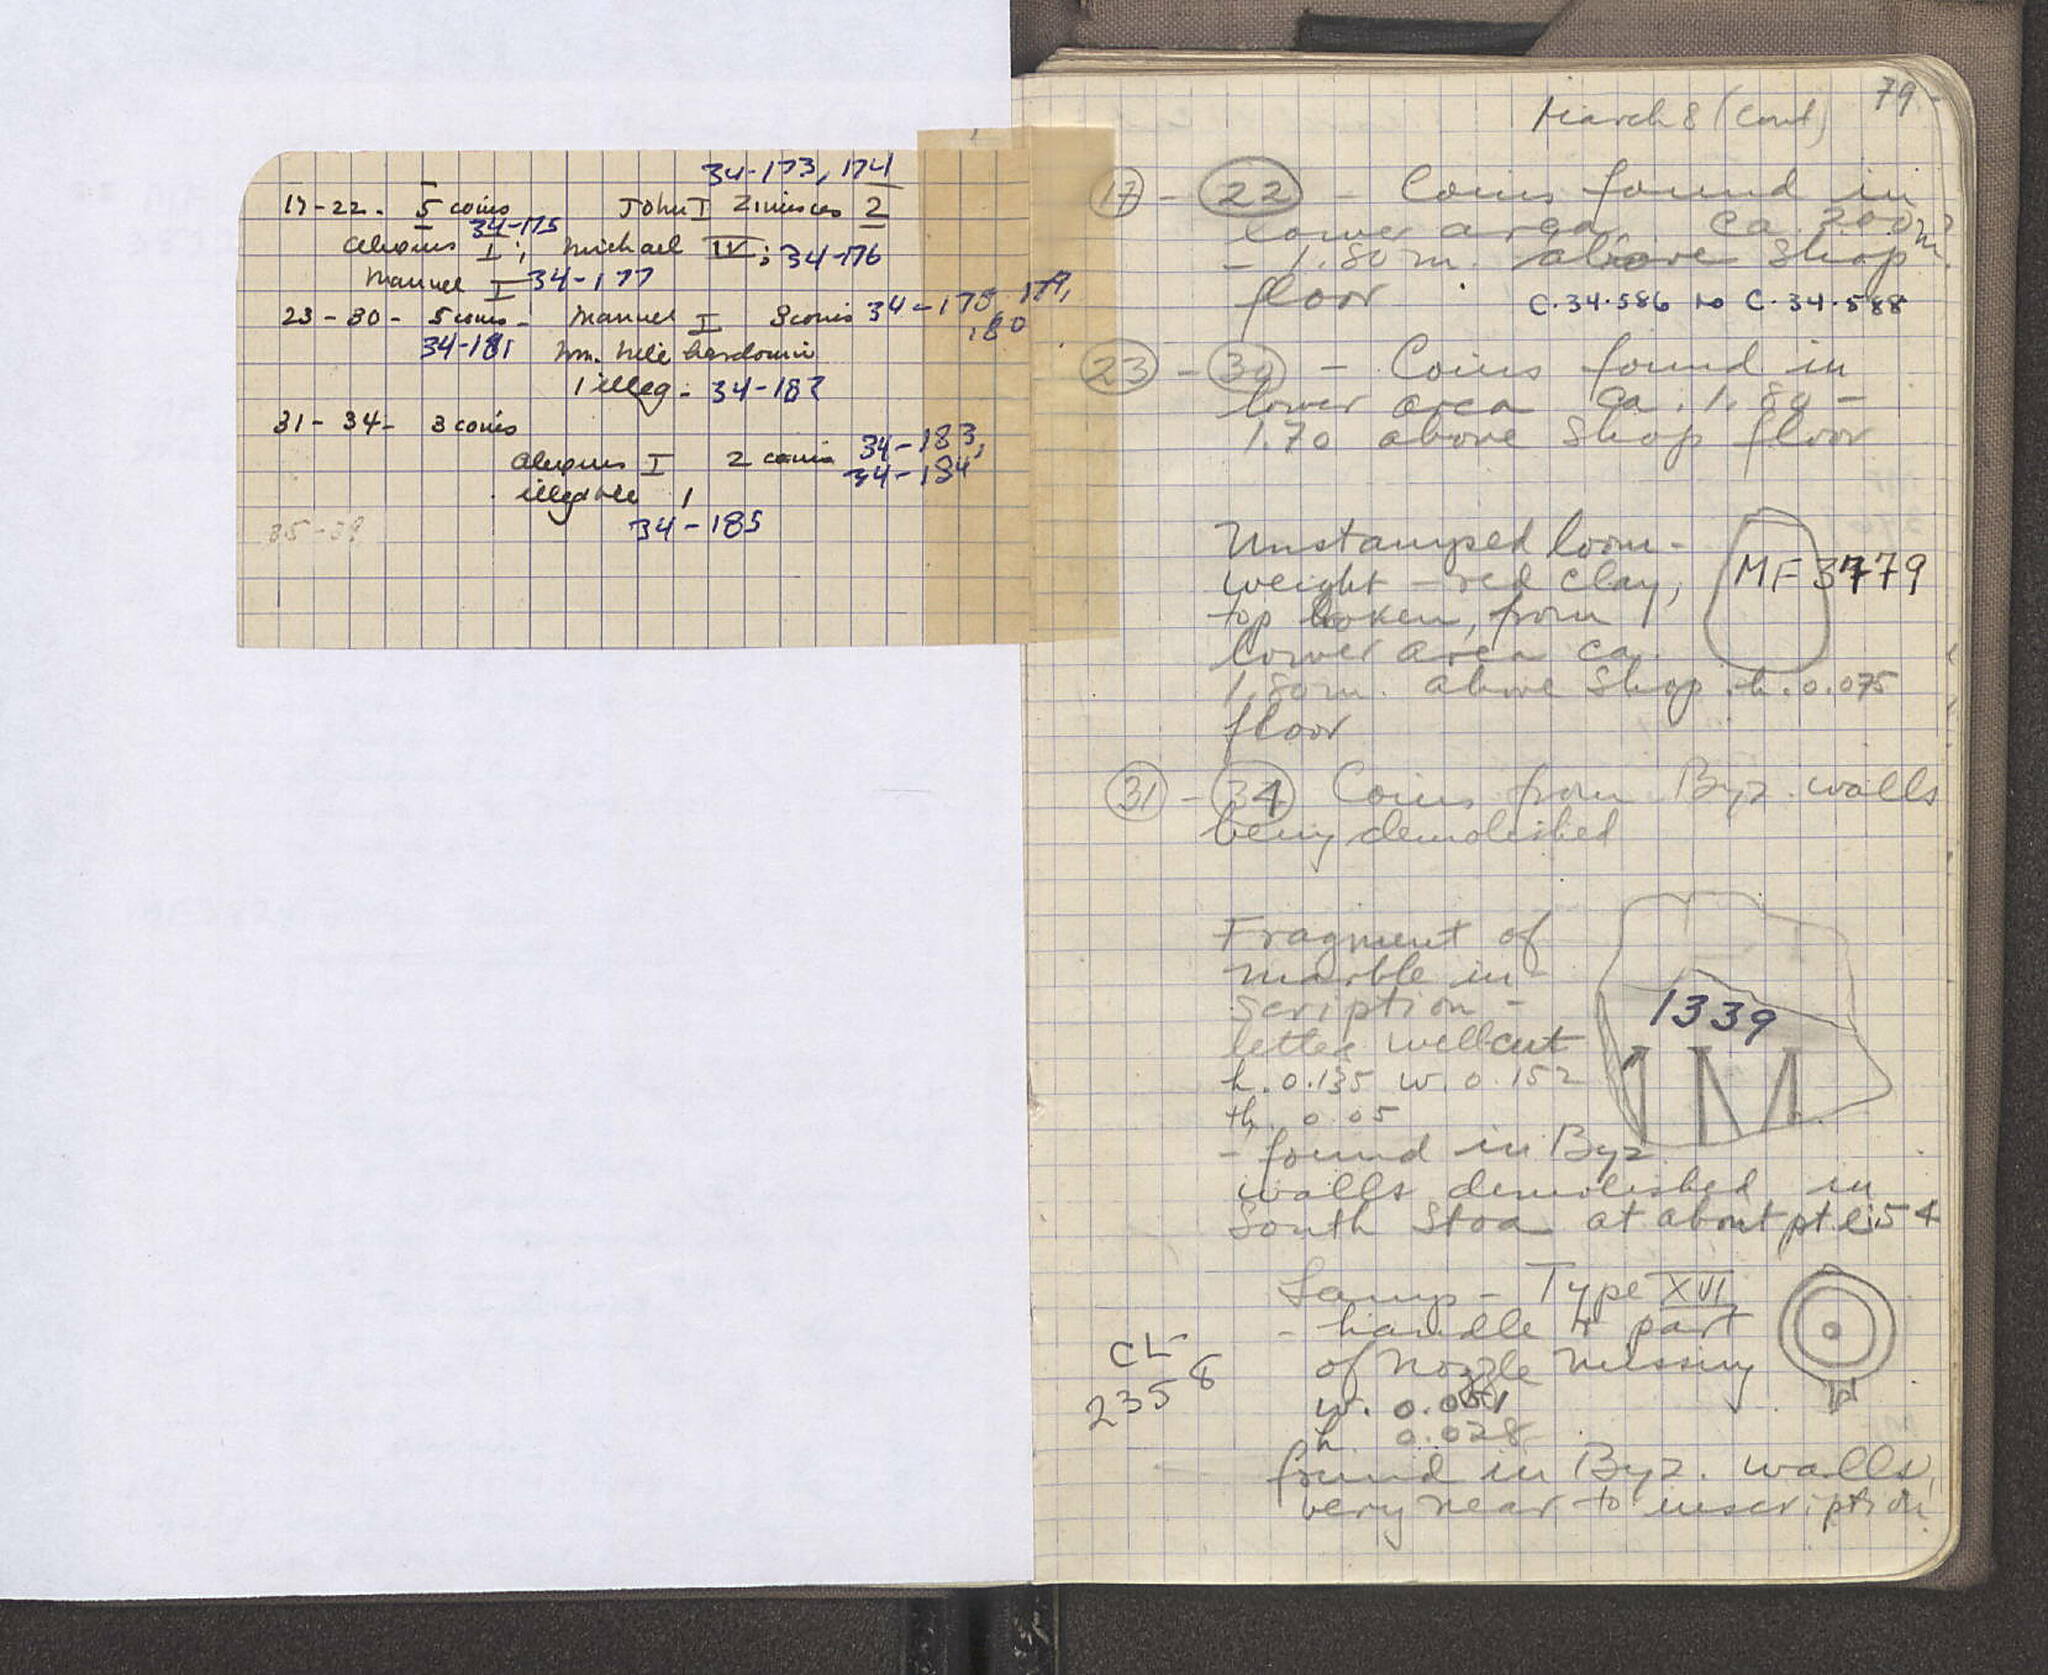 34-173, 174
17-22. 5 coins John I Zimisces 2
34-175
Alexius I; Michael IV; 34-176
Manuel I 34-177
23-30- 5 coins- Manuel I 3 coins 34-178, 179,
180
34-181 Wm. Ville hardouin
1 illeg- 34-182
31-34- 3 coins
34-183,
Alexius I 2 coins
34-184
illegible 1
34-185
35-39
79
March 8 (cont)
17 - 22 - Coins found in
lower area ca. 2.00m
- 1.80 m. above shop
floor
C.34.586 to C.34.588
23 - 30 - Coins found in
lower area ca. 1.80-
1.70 above shop floor
Unstamped loom-
weight - red clay,
MF 3779
top broken, from
lower area ca.
1.80 m. above shop h. 0.075
floor
31 - 34 Coins from Byz. walls
being demolished
Fragment of
marble in-
scription-
1339
letter well cut
IM
h. 0.135 w. 0.152
th. 0.05
- found in Byz
walls demolished in
South Stoa at about pt. 54
Lamp - Type XVI
- handle & part
of nozzle missing
CL-
2358
w.
h 0.028
found in Byz. walls,
very near to inscription